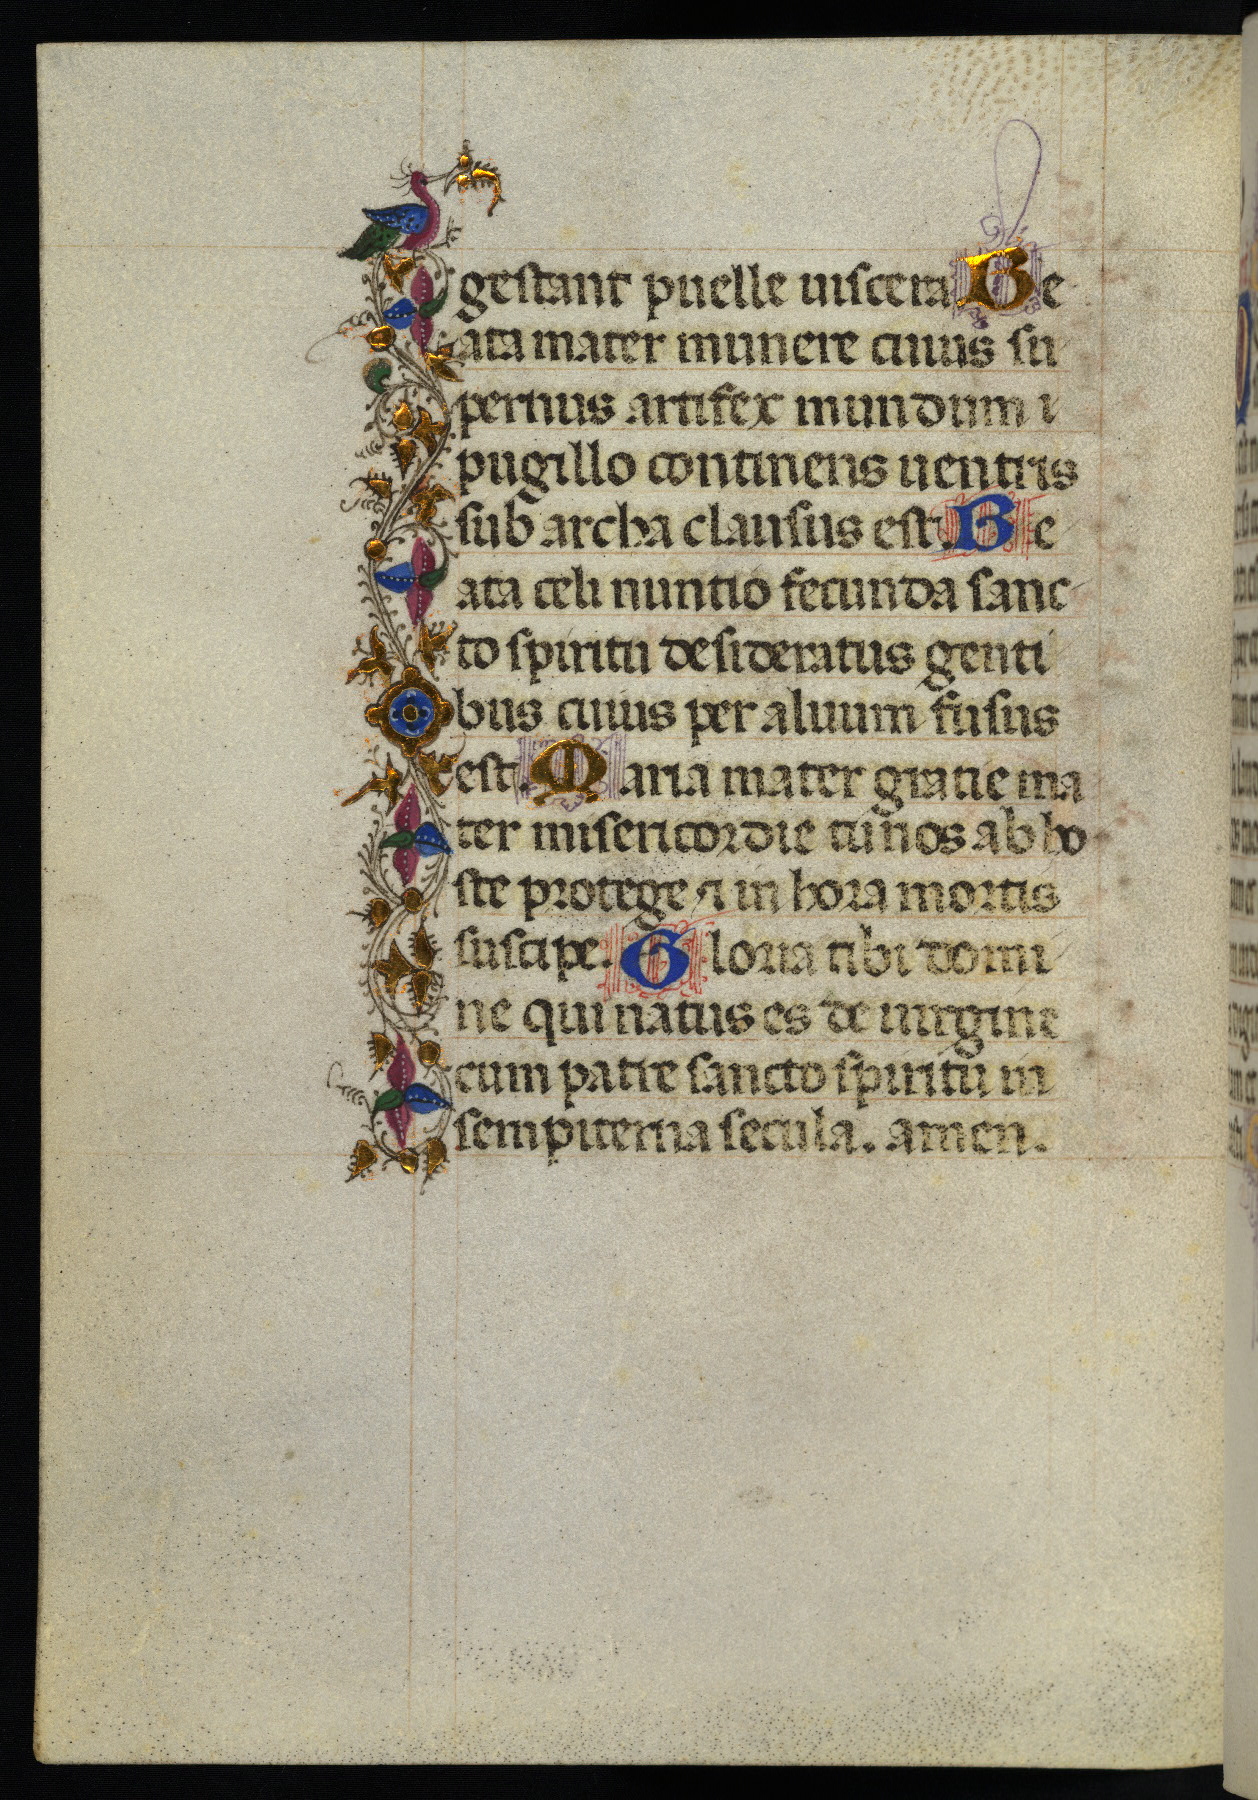 gestant puelle uiscera Be
ata mater munere cuius su
pernus artifex mundum i
pugillo continens uentris
sub archa clausus est. Be
ata celi nuntio fecunda sanc
to spiritu desideratus genti
bus cuius per aluum fusus
est. Maria mater gratie ma
ter misericordie tu nos ab ho
ste protege ⁊ in hora mortis
suscipe. Gloria tibi domi
ne qui natus es de uirgine
cum patre sancto spiritu in
sempiterna secula. amen.